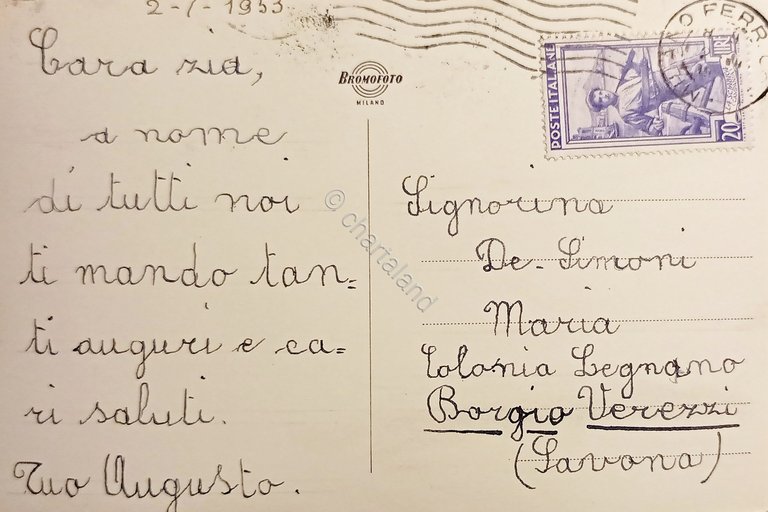 2-7-1953
Cara zia,
a nome
di tutti noi
ti mando tan=
ti auguri e ca=
ri saluti.
Tuo Augusto.
BROMOFOTO
MILANO
POSTE ITALIANE
20
LIRE
FERR
Signorina
De-Simoni
Maria
Colonia Legnano
Borgio Verezzi
(Savona)
© chartaland